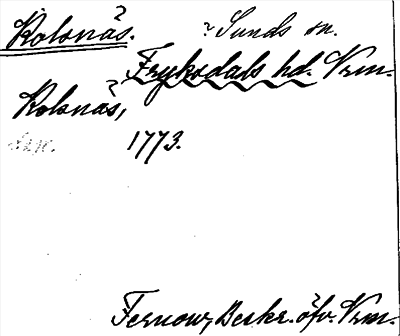 Kolsnäs. ~ Sunds sn.
Fryksdals hd. Vrm.
Kolsnäs,
1773.
Fernow, Beskr. öfv. Vrm.